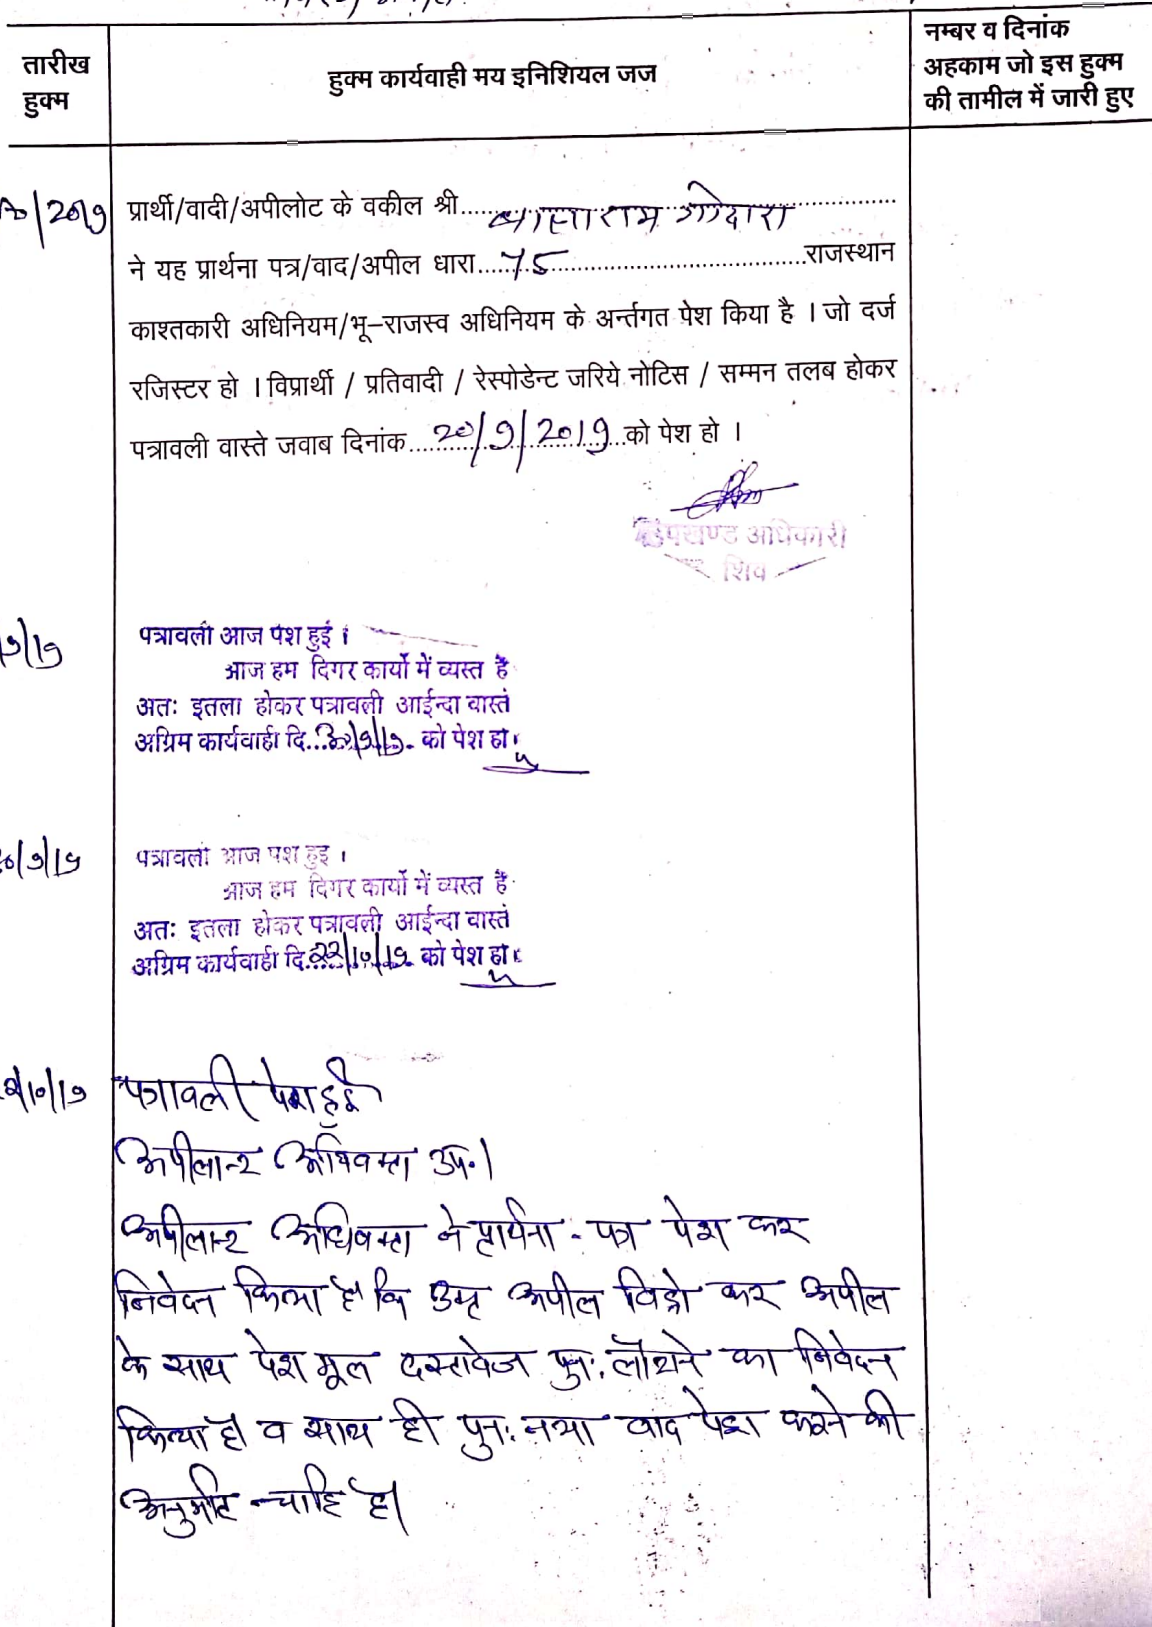 तारीख
हुक्म
हुक्म कार्यवाही मय इनिशियल जज
नम्बर व दिनांक
अहकाम जो इस हुक्म
की तामील में जारी हुए
/2019 प्रार्थी/वादी/अपीलोट के वकील श्री.......... गोदारा
ने यह प्रार्थना पत्र/वाद/अपील धारा.....75..........राजस्थान
काश्तकारी अधिनियम/भू–राजस्व अधिनियम के अर्न्तगत पेश किया है । जो दर्ज
रजिस्टर हो । विप्रार्थी / प्रतिवादी / रेस्पोडेन्ट जरिये नोटिस / सम्मन तलब होकर
पत्रावली वास्ते जवाब दिनांक....20/9/2019...को पेश हो ।
उपखण्ड अधिकारी
शिव
9/19 पत्रावली आज पेश हुई ।
आज हम दिगर कार्यो में व्यस्त है
अतः इतला होकर पत्रावली आईन्दा वास्ते
अग्रिम कार्यवाही दि...30/9/19. को पेश हो।
30/9/19 पत्रावली आज पेश हुई ।
आज हम दिगर कार्यो में व्यस्त है
अतः इतला होकर पत्रावली आईन्दा वास्ते
अग्रिम कार्यवाही दि.22/10/19 को पेश हो।
/10/19 पत्रावली पेश हुई
अपीलान्ट अधिवक्ता उप.।
अपीलान्ट अधिवक्ता ने प्रार्थना - पत्र पेश कर
निवेदन किया है कि उक्त अपील विड्रो कर अपील
के साथ पेश मूल दस्तावेज पुनः लौटाने का निवेदन
किया है व साथ ही पुनः नया वाद पेश करने की
अनुमति चाहि है।